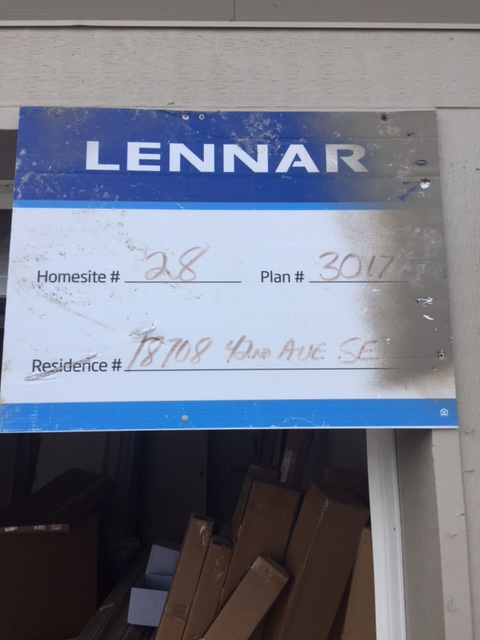 LENNAR
Homesite # 28 Plan # 3017
Residence # 18708 42ND AVE SE